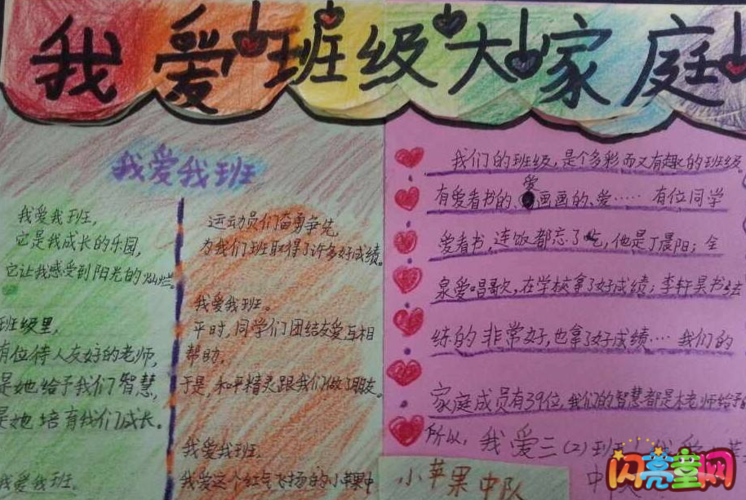 我爱班级大家庭
我爱我班
我爱我班,
它是我成长的乐园,
它让我感受到阳光的灿烂。
班级里,
有位待人友好的老师,
是她给予我们智慧,
是她培育我们成长。
我爱我班。
运动员们奋勇争先,
为我们班取得了许多好成绩。
我爱我班。
平时,同学们团结友爱互相
帮助,
于是,和平精灵跟我们做了朋友。
我爱我班.
我爱这个红气飞扬的小苹果中
我们的班级,是个多彩而又有趣的班级
有爱看书的、爱画画的、爱……有位同学
爱看书,连饭都忘了吃,他是丁晨阳;全
泉爱唱歌,在学校拿了好成绩;李轩昊书法
练的非常好,也拿了好成绩……我们的
家庭成员有39位,我们的智慧都是林老师给予
所以,我爱三(2)班
小苹果中队
闪亮童网